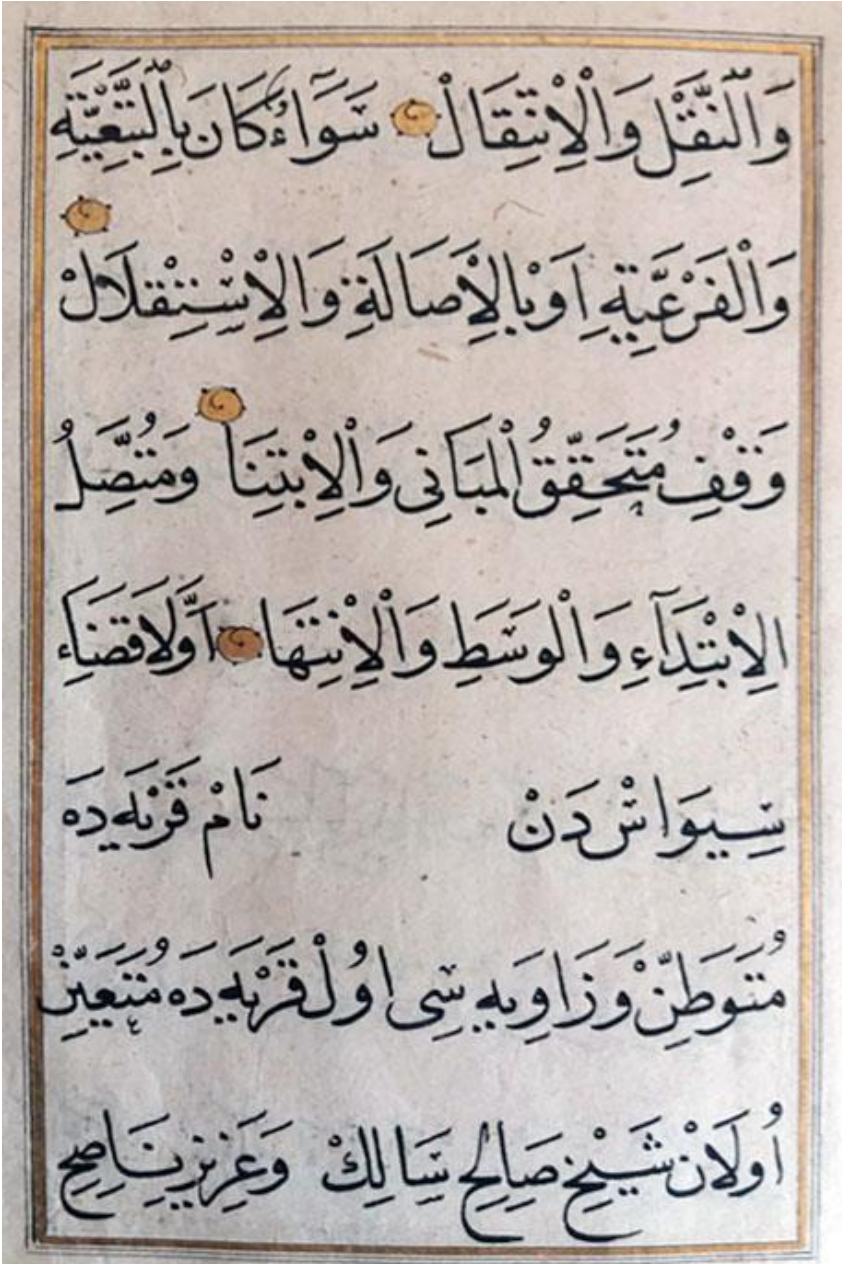 وَالنَّقْلِ وَالْاِنْتِقَالْ سَوَٓاءٌ كَانَ بِالتَّبَعِيَّةِ
وَالْفَرْعِيَّةِ اَوْ بِالْاَصَالَةِ وَالْاِسْتِقْلَالْ
وَقْفِ مُتَحَقِّقُ الْمَبَانِى وَالْاِبْتِنَا وَمُتَّصِلُ
الْاِبْتِدَٓاءِ وَالْوَسَطِ وَالْاِنْتِهَا اَوَّلَا قَضَاءِ
سِيوَاسْ دَنْ نَامْ قَرْيَه دَه
مُتَوَطِّنْ وَزَاوِيَه سِى اوُلْ قَرْيَه دَه مُتَعَيِّنْ
اُولَانْ شَيْخِ صَالِحِ سَالِكْ وَعَزِيزِ نَاصِحِ